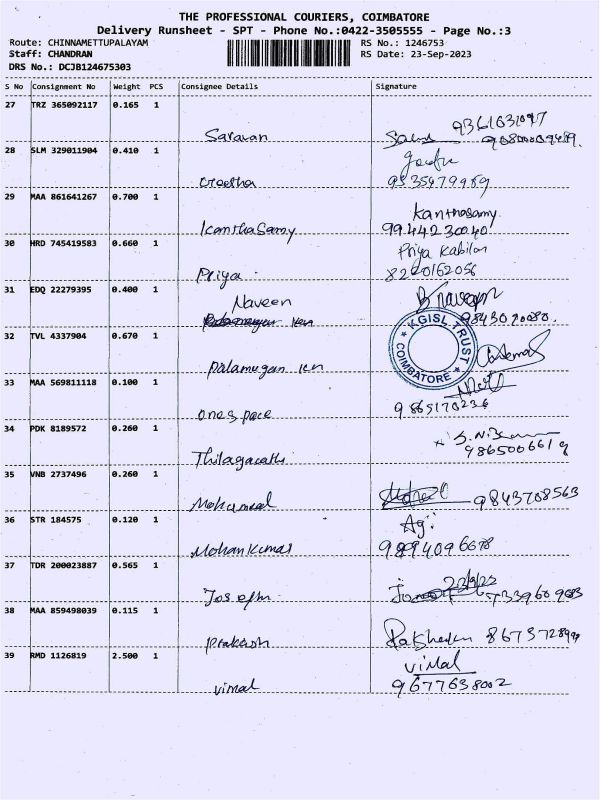 THE PROFESSIONAL COURIERS, COIMBATORE
Delivery Runsheet - SPT - Phone No.:0422-3505555 - Page No.:3
Route: CHINNAMETTUPALAYAM RS No.: 1246753
Staff: CHANDRAN RS Date: 23-Sep-2023
DRS No.: DCJB124675303
S No Consignment No Weight PCS Consignee Details Signature
27 TRZ 365092117 0.165 1
Saravan
28 SLM 329011904 0.410 1
Geetha
29 MAA 861641267 0.700 1
Kanthasamy
KanthaSamy 9944230040
30 HRD 745419583 0.660 1 Priya Kabilan
Priya 8220162056
31 EDQ 22279395 0.400 1
Naveen B naveen
9843020080.
32 TVL 4337904 0.670 1 KGISL TRUST
COIMBATORE
Palamugan
33 MAA 569811118 0.100 1
onespace 9865170236
34 PDK 8189572 0.260 1
Thilagavathi 9865006619
35 VNB 2737496 0.260 1
Mohamed 9843708563
36 STR 184575 0.120 1
Mohan Kumar 9894096678
37 TDR 200023887 0.565 1
733960983
38 MAA 859498039 0.115 1
Prakash
39 RMD 1126819 2.500 1 vimal
vimal 9677638002